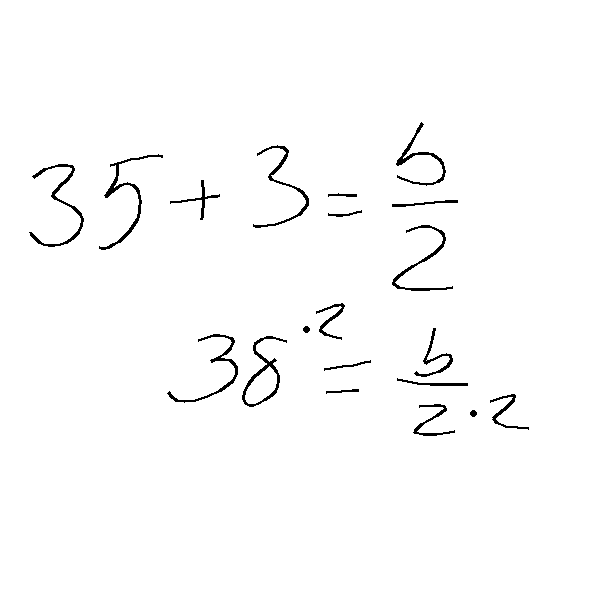 35 + 3 = b/2
38 · 2 = b/2 · 2